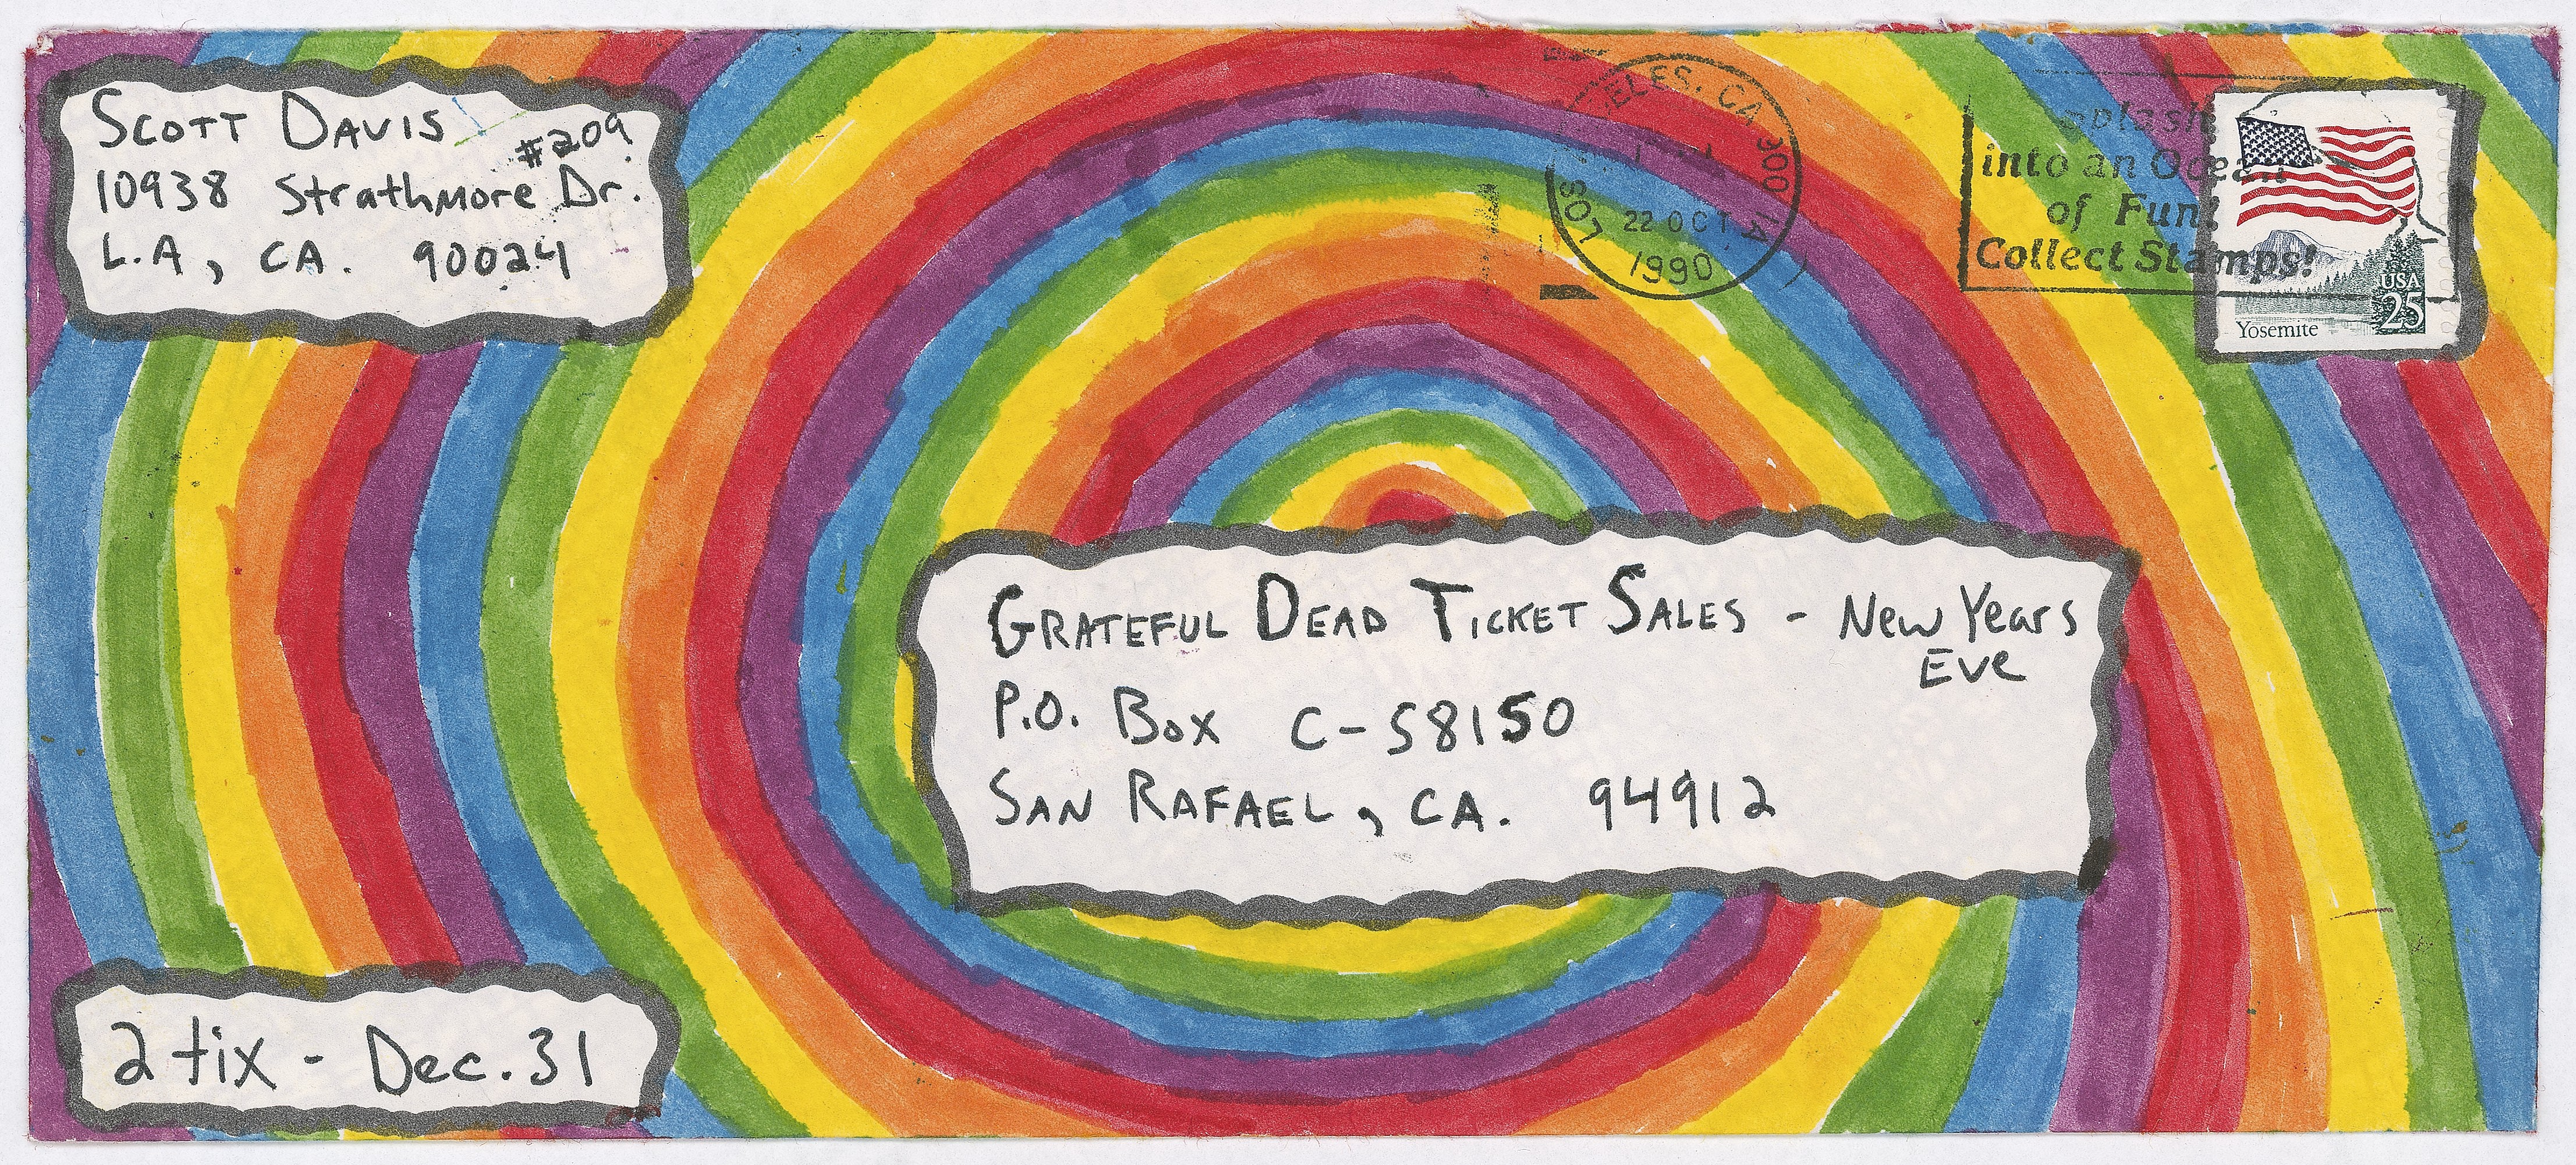 SCOTT DAVIS
#209
10938 Strathmore Dr.
L.A, CA. 90024
ELES, CA 900
LOS
22 OCT
1990
Splash
into an Ocean
of Fun!
Collect Stamps!
USA
25
Yosemite
GRATEFUL DEAD TICKET SALES - New Years
Eve
P.O. Box C-58150
SAN RAFAEL, CA. 94912
2 tix - Dec. 31